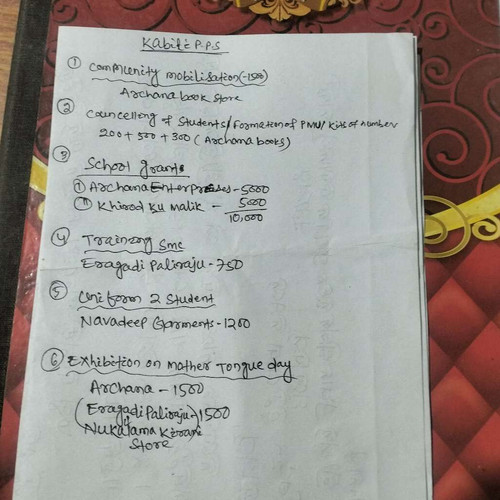 Kabiti P.P.S
① Community mobilisation(-1500)
Archana book store
② Councelling of Students/Formation of PMU/Kits of number
200 + 500 + 300 (Archana books)
③ School grants
① Archana Enterprises - 5000
② Khirod ku malik - 5000
10,000
④ Training Smc
Eragadi Paliraju - 750
⑤ Uniform 2 Student
Navadeep Garments - 1200
⑥ Exhibition on mother Tongue day
Archana - 1500
(Eragadi Paliraju - 1500
Nukalama Kirani
Store